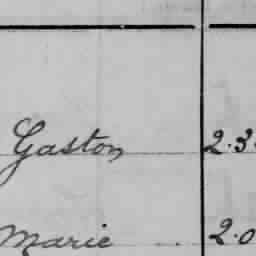 Gaston 2.3.
Marie .. 2.0